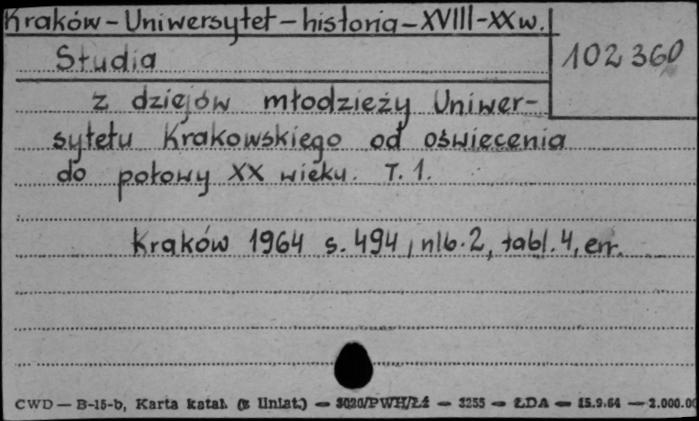 Kraków - Uniwersytet - historia - XVIII - XX w.
102 360
Studia
z dziejów młodzieży Uniwer-
sytetu Krakowskiego od oświecenia
do połowy XX wieku. T. 1.
Kraków 1964 s. 494, nlb. 2, tabl. 4, err.
CWD — B-15-b, Karta katal. (z Uniat.) — 3020/PWH/Łł — 3255 — ŁDA — 15.9.64 — 2.000.00